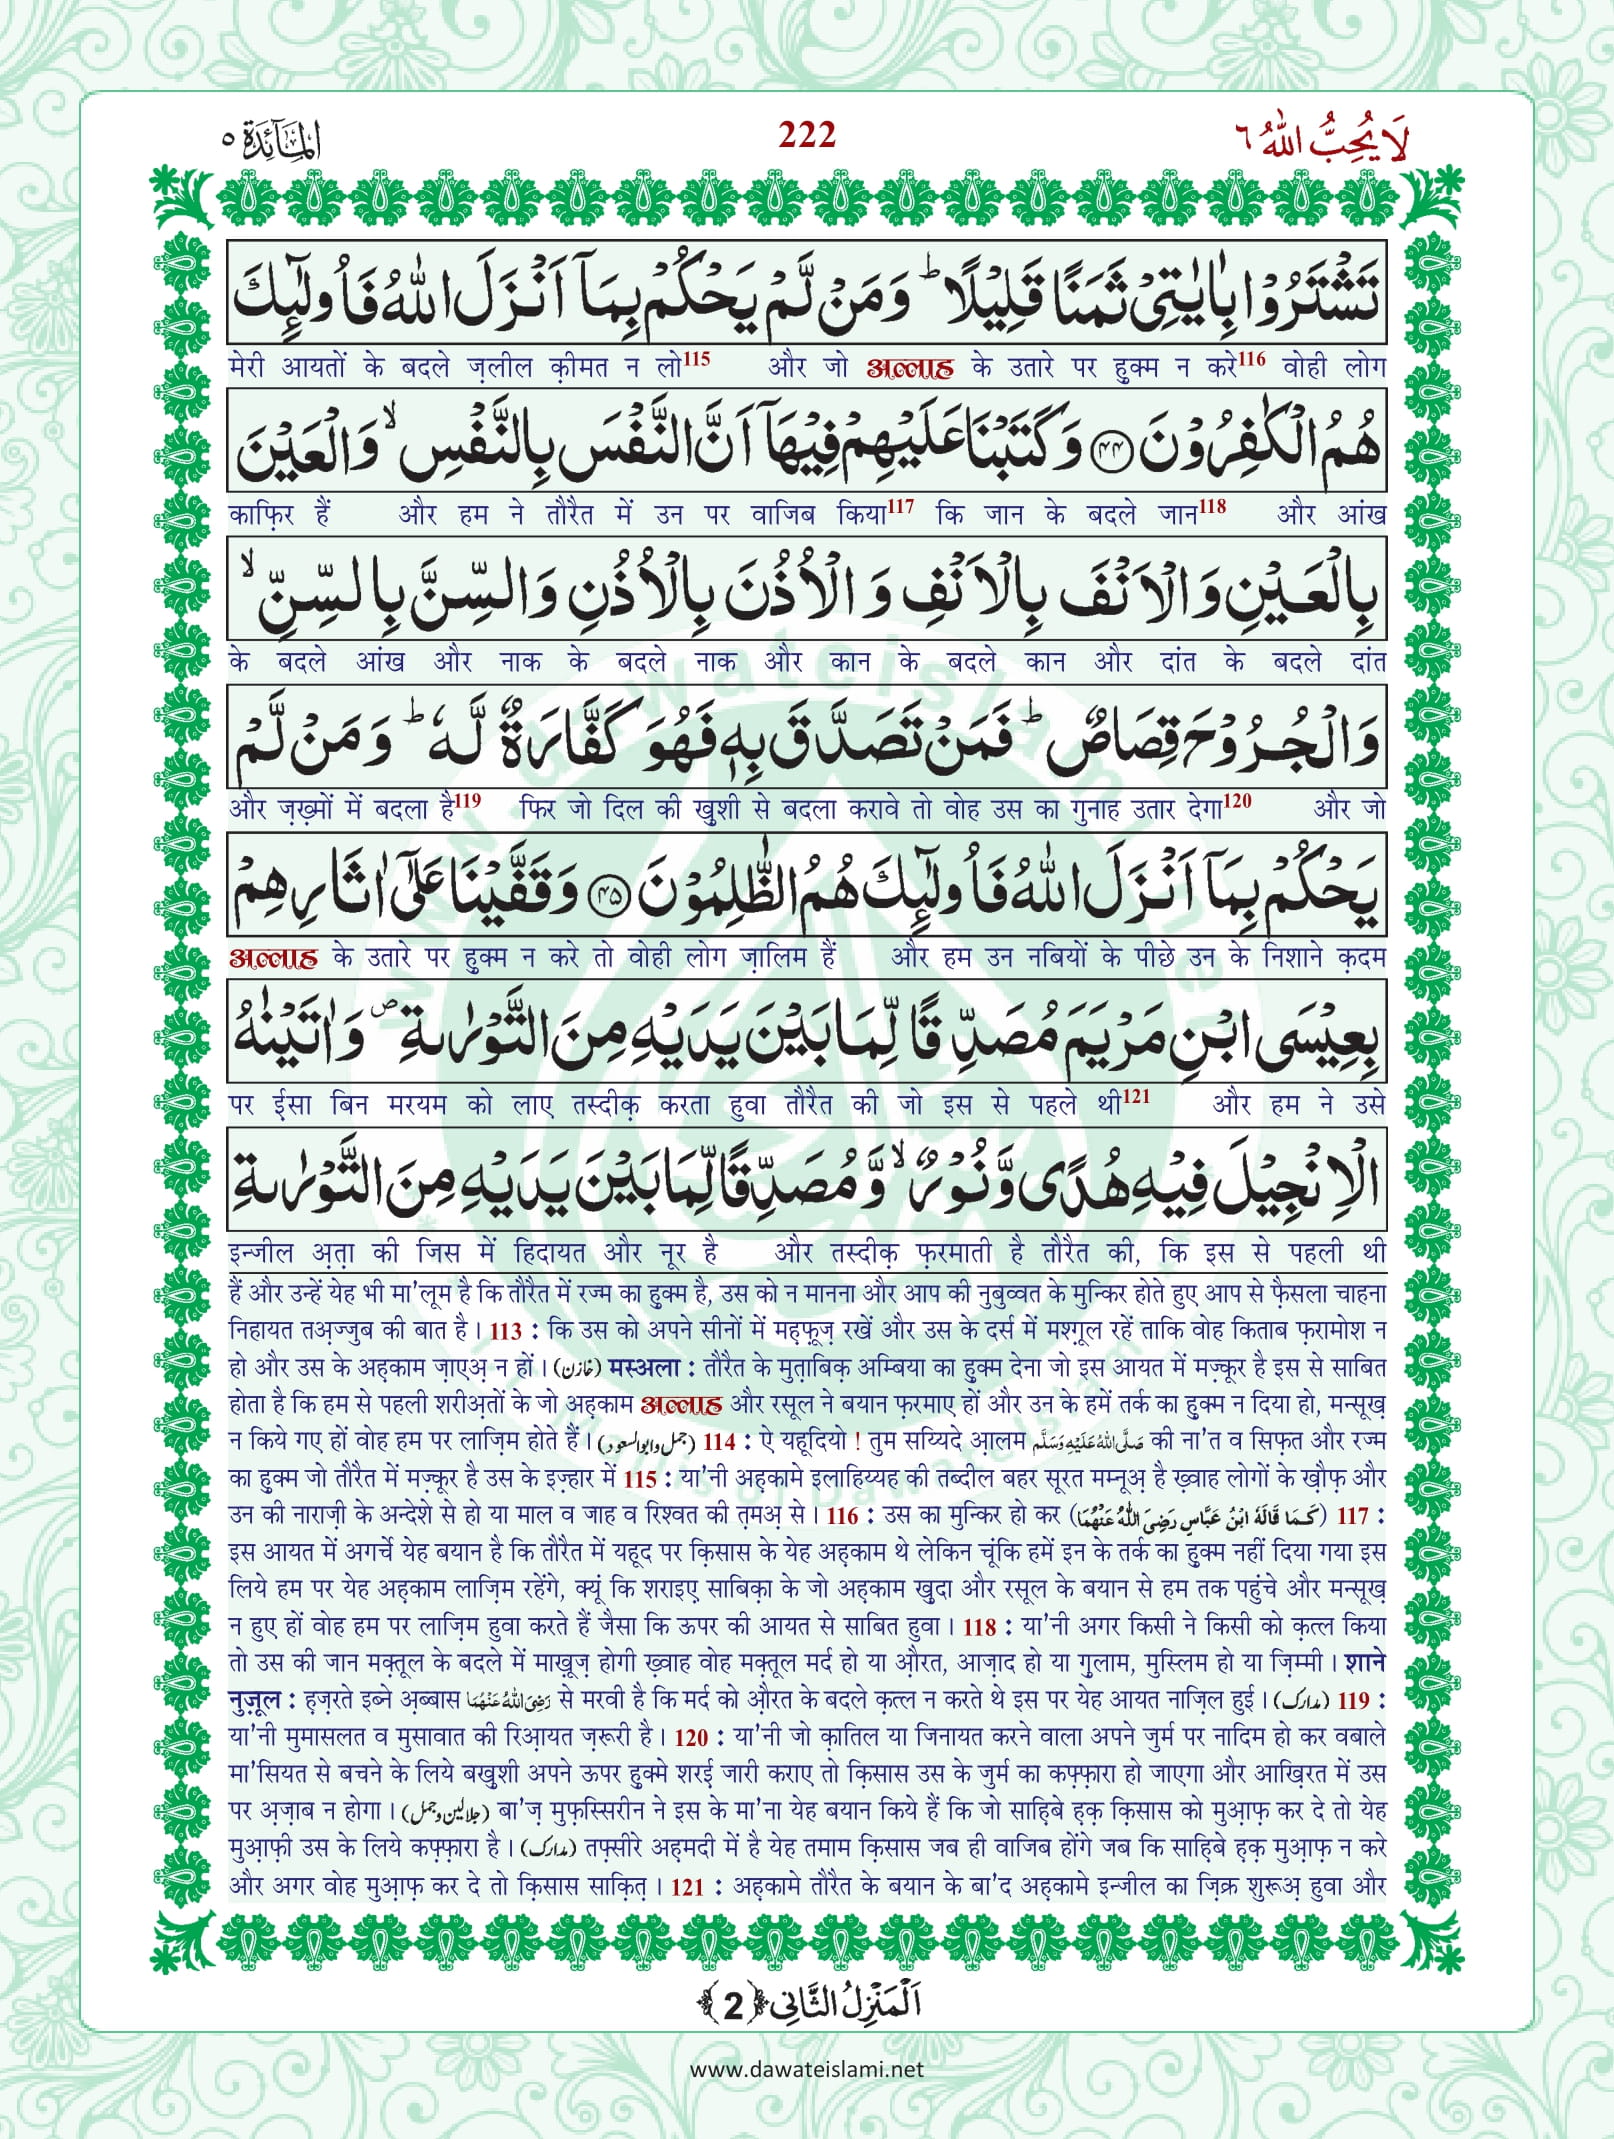 لَا يُحِبُّ اللّٰهُ ٦
222
الْمَآئِدَة ٥
تَشْتَرُوْا بِاٰيٰتِيْ ثَمَنًا قَلِيْلًا ؕ وَ مَنْ لَّمْ يَحْكُمْ بِمَاۤ اَنْزَلَ اللّٰهُ فَاُولٰٓىِٕكَ
मेरी आयतों के बदले ज़लील क़ीमत न लो115 और जो अल्लाह के उतारे पर हुक्म न करे116 वोही लोग
هُمُ الْكٰفِرُوْنَ ﴿۴۴﴾ وَ كَتَبْنَا عَلَيْهِمْ فِيْهَاۤ اَنَّ النَّفْسَ بِالنَّفْسِ ۙ وَ الْعَيْنَ
काफ़िर हैं और हम ने तौरैत में उन पर वाजिब किया117 कि जान के बदले जान118 और आंख
بِالْعَيْنِ وَ الْاَنْفَ بِالْاَنْفِ وَ الْاُذُنَ بِالْاُذُنِ وَ السِّنَّ بِالسِّنِّ ۙ
के बदले आंख और नाक के बदले नाक और कान के बदले कान और दांत के बदले दांत
وَ الْجُرُوْحَ قِصَاصٌ ؕ فَمَنْ تَصَدَّقَ بِهٖ فَهُوَ كَفَّارَةٌ لَّهٗ ؕ وَ مَنْ لَّمْ
और ज़ख़्मों में बदला है119 फिर जो दिल की खुशी से बदला करावे तो वोह उस का गुनाह उतार देगा120 और जो
يَحْكُمْ بِمَاۤ اَنْزَلَ اللّٰهُ فَاُولٰٓىِٕكَ هُمُ الظّٰلِمُوْنَ ﴿۴۵﴾ وَ قَفَّيْنَا عَلٰۤى اٰثَارِهِمْ
अल्लाह के उतारे पर हुक्म न करे तो वोही लोग ज़ालिम हैं और हम उन नबियों के पीछे उन के निशाने क़दम
بِعِيْسَى ابْنِ مَرْيَمَ مُصَدِّقًا لِّمَا بَيْنَ يَدَيْهِ مِنَ التَّوْرٰىةِ ۪ وَ اٰتَيْنٰهُ
पर ईसा बिन मरयम को लाए तस्दीक़ करता हुवा तौरैत की जो इस से पहले थी121 और हम ने उसे
الْاِنْجِيْلَ فِيْهِ هُدًى وَّ نُوْرٌ ۙ وَّ مُصَدِّقًا لِّمَا بَيْنَ يَدَيْهِ مِنَ التَّوْرٰىةِ
इन्जील अ़त़ा की जिस में हिदायत और नूर है और तस्दीक़ फ़रमाती है तौरैत की, कि इस से पहली थी
हैं और उन्हें येह भी मा'लूम है कि तौरैत में रज्म का हुक्म है, उस को न मानना और आप की नुबुव्वत के मुन्किर होते हुए आप से फ़ैसला चाहना
निहायत तअ़ज्जुब की बात है। 113 : कि उस को अपने सीनों में मह़फ़ूज़ रखें और उस के दर्स में मश्ग़ूल रहें ताकि वोह किताब फ़रामोश न
हो और उस के अह़काम ज़ाएअ़ न हों। (خازن) मस्अला : तौरैत के मुत़ाबिक़ अम्बिया का हुक्म देना जो इस आयत में मज़्कूर है इस से साबित
होता है कि हम से पहली शरीअ़तों के जो अह़काम अल्लाह और रसूल ने बयान फ़रमाए हों और उन के हमें तर्क का हुक्म न दिया हो, मन्सूख़
न किये गए हों वोह हम पर लाज़िम होते हैं। (جمل وابوالسعود) 114 : ऐ यहूदियो ! तुम सय्यिदे आ़लम صَلَّى اللّٰهُ عَلَيْهِ وَسَلَّم की ना'त व सिफ़त और रज्म
का हुक्म जो तौरैत में मज़्कूर है उस के इज़्हार में 115 : या'नी अह़कामे इलाहिय्यह की तब्दील बहर सूरत मम्नूअ़ है ख़्वाह लोगों के ख़ौफ़ और
उन की नाराज़ी के अन्देशे से हो या माल व जाह व रिश्वत की त़मअ़ से। 116 : उस का मुन्किर हो कर (كَمَا قَالَهُ ابْنُ عَبَّاسٍ رَضِيَ اللّٰهُ عَنْهُمَا) 117 :
इस आयत में अगर्चे येह बयान है कि तौरैत में यहूद पर क़िसास के येह अह़काम थे लेकिन चूंकि हमें इन के तर्क का हुक्म नहीं दिया गया इस
लिये हम पर येह अह़काम लाज़िम रहेंगे, क्यूं कि शराइए साबिक़ा के जो अह़काम खुदा और रसूल के बयान से हम तक पहुंचे और मन्सूख़
न हुए हों वोह हम पर लाज़िम हुवा करते हैं जैसा कि ऊपर की आयत से साबित हुवा। 118 : या'नी अगर किसी ने किसी को क़त्ल किया
तो उस की जान मक़्तूल के बदले में माख़ूज़ होगी ख़्वाह वोह मक़्तूल मर्द हो या औ़रत, आज़ाद हो या गुलाम, मुस्लिम हो या ज़िम्मी। शाने
नुज़ूल : ह़ज़रते इब्ने अ़ब्बास رَضِيَ اللّٰهُ عَنْهُمَا से मरवी है कि मर्द को औ़रत के बदले क़त्ल न करते थे इस पर येह आयत नाज़िल हुई। (مدارک) 119 :
या'नी मुमासलत व मुसावात की रिआ़यत ज़रूरी है। 120 : या'नी जो क़ातिल या जिनायत करने वाला अपने जुर्म पर नादिम हो कर वबाले
मा'सियत से बचने के लिये बखुशी अपने ऊपर हुक्मे शरई जारी कराए तो क़िसास उस के जुर्म का कफ़्फ़ारा हो जाएगा और आख़िरत में उस
पर अ़ज़ाब न होगा। (جلالین وجمل) बा'ज़ मुफ़स्सिरीन ने इस के मा'ना येह बयान किये हैं कि जो साह़िबे ह़क़ क़िसास को मुआ़फ़ कर दे तो येह
मुआ़फ़ी उस के लिये कफ़्फ़ारा है। (مدارک) तफ़्सीरे अह़मदी में है येह तमाम क़िसास जब ही वाजिब होंगे जब कि साह़िबे ह़क़ मुआ़फ़ न करे
और अगर वोह मुआ़फ़ कर दे तो क़िसास साक़ित़। 121 : अह़कामे तौरैत के बयान के बा'द अह़कामे इन्जील का ज़िक्र शुरूअ़ हुवा और
اَلْمَنْزِلُ الثَّانِى ﴿2﴾
www.dawateislami.net